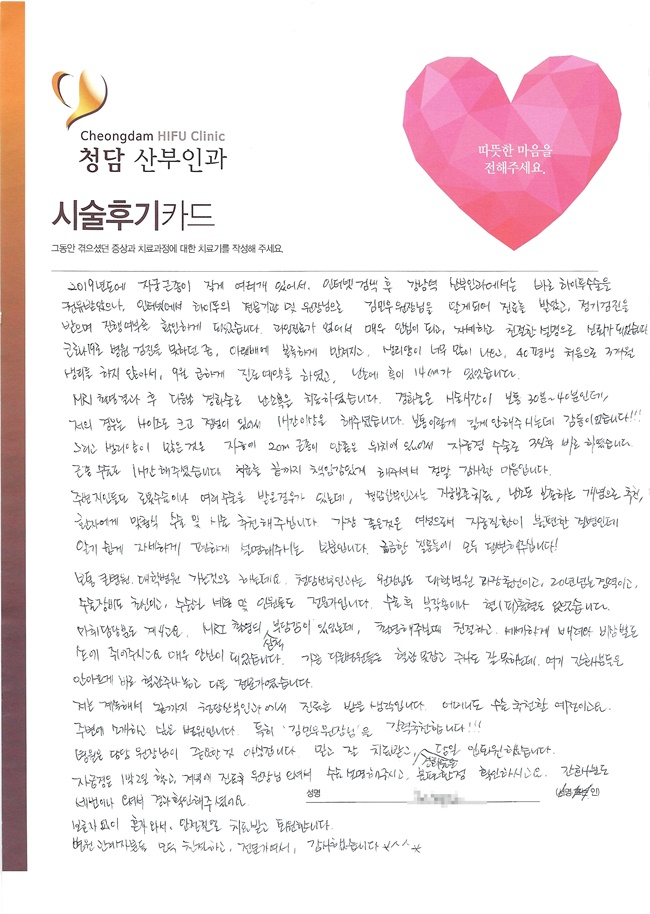 Cheongdam HIFU Clinic
청담 산부인과
따뜻한 마음을
전해주세요.
시술후기카드
그동안 겪으셨던 증상과 치료과정에 대한 치료기를 작성해 주세요.
2019년도에 자궁근종이 작게 여러개 있어서, 인터넷 검색 후 강남역 산부인과에서는 바로 하이푸수술을
권유받았으나, 인터넷에서 하이푸의 전문기관 및 원장님으로 김민우원장님을 알게되어 진료를 받았고, 정기검진을
받으며 진행여부를 확인하게 되었습니다. 과잉진료가 없어서 매우 안심이 되고, 자세하고 친절한 설명으로 신뢰가 되었습니다
코로나19로 병원 검진을 못하던 중, 아랫배에 볼록하게 만져지고, 생리양이 너무 많이 나오고, 40평생 처음으로 3개월
생리를 하지 않아서, 9월 급하게 진료예약을 하였고, 난소에 혹이 14cm가 있었습니다.
MRI 촬영결과 후 다음날 경화술로 난소혹을 치료하였습니다. 경화술은 시술시간이 보통 30분~40분인데,
저의 경우는 사이즈도 크고 점성이 있어서 1시간이상을 해주셨습니다. 보통이렇게 길게 안해주시는데 감동이었습니다!!!
그리고 생리양이 많은것은 자궁에 2cm 근종이 안좋은 위치에 있어서 자궁경 수술로 3일후 바로 하였습니다.
근종 수술도 1시간 해주셨습니다 치료를 끝까지 책임감있게 해주셔서 정말 감사한 마음입니다.
주변 지인들도 로봇수술이나 여러수술을 받은경우가 있는데, 청담산부인과는 자궁보존치료, 난소도 보존하는 개념으로 추천,
환자에게 맞춤식 수술 및 시술 추천해주십니다. 가장 좋은것은 여성으로서 자궁질환이 불편한 질병인데
알기 쉽게 자세하게 편하게 설명해주시는 부분입니다. 궁금한 질문들에 모두 답변해주십니다!
보통 큰병원, 대학병원 가는것으로 아는데요. 청담산부인과는 원장님도 대학병원 과장출신이고, 20년넘는경력이고,
수술장비도 최신이고, 수술실 시설 및 인원들도 전문가입니다. 수술 후 부작용이나 현(재)통증도 없었습니다.
마취담당분도 계시고요. MRI 촬영의 심적 부담감이 있었는데, 촬영해주실때 친절하고, 세심하게 배려와 비상벨도
손에 쥐어주시고요 매우 안심이 되었습니다. 가끔 다른병원들은 혈관 못잡고 주사도 잘 못하는데, 여기 간호사분들은
안아프게 바로 혈관주사놓고 다들 전문가였습니다.
저는 계속해서 끝까지 청담산부인과에서 진료를 받을 생각입니다. 어머니도 수술 추천할 예정이고요.
주변에 소개하고 싶은 병원입니다. 특히 '김민우원장님'을 강력추천합니다!!!
병원은 담당 원장님이 중요한 것 아닐겁니까. 믿고 잘 치료받고, 경화술은 당일 입퇴원하였습니다.
자궁경은 1박2일 하고, 저녁에 진료후 원장님 오셔서 수술 설명해주시고, 불편한점 확인하시고요. 간호사분도
세번이나 오셔서 경과확인해주셨어요.
성명
보호자 없이 혼자 와서, 안전진료 치료받고 퇴원합니다.
병원 관계자분들 모두 친절하고, 전문가여서, 감사했습니다 *^^*